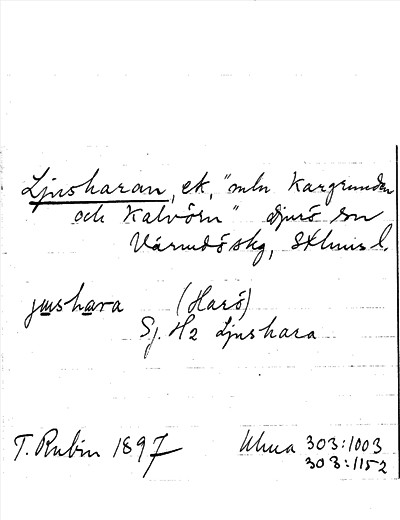 Ljusharan, ek, "mln Kargrundan
och Kalvörn" Djurö sn
Värmdöskg, Sthlms l.
jushara (Harö)
Sj. H2 Ljushara
T. Rubin 1897 Uhua 303:1003
303:1152